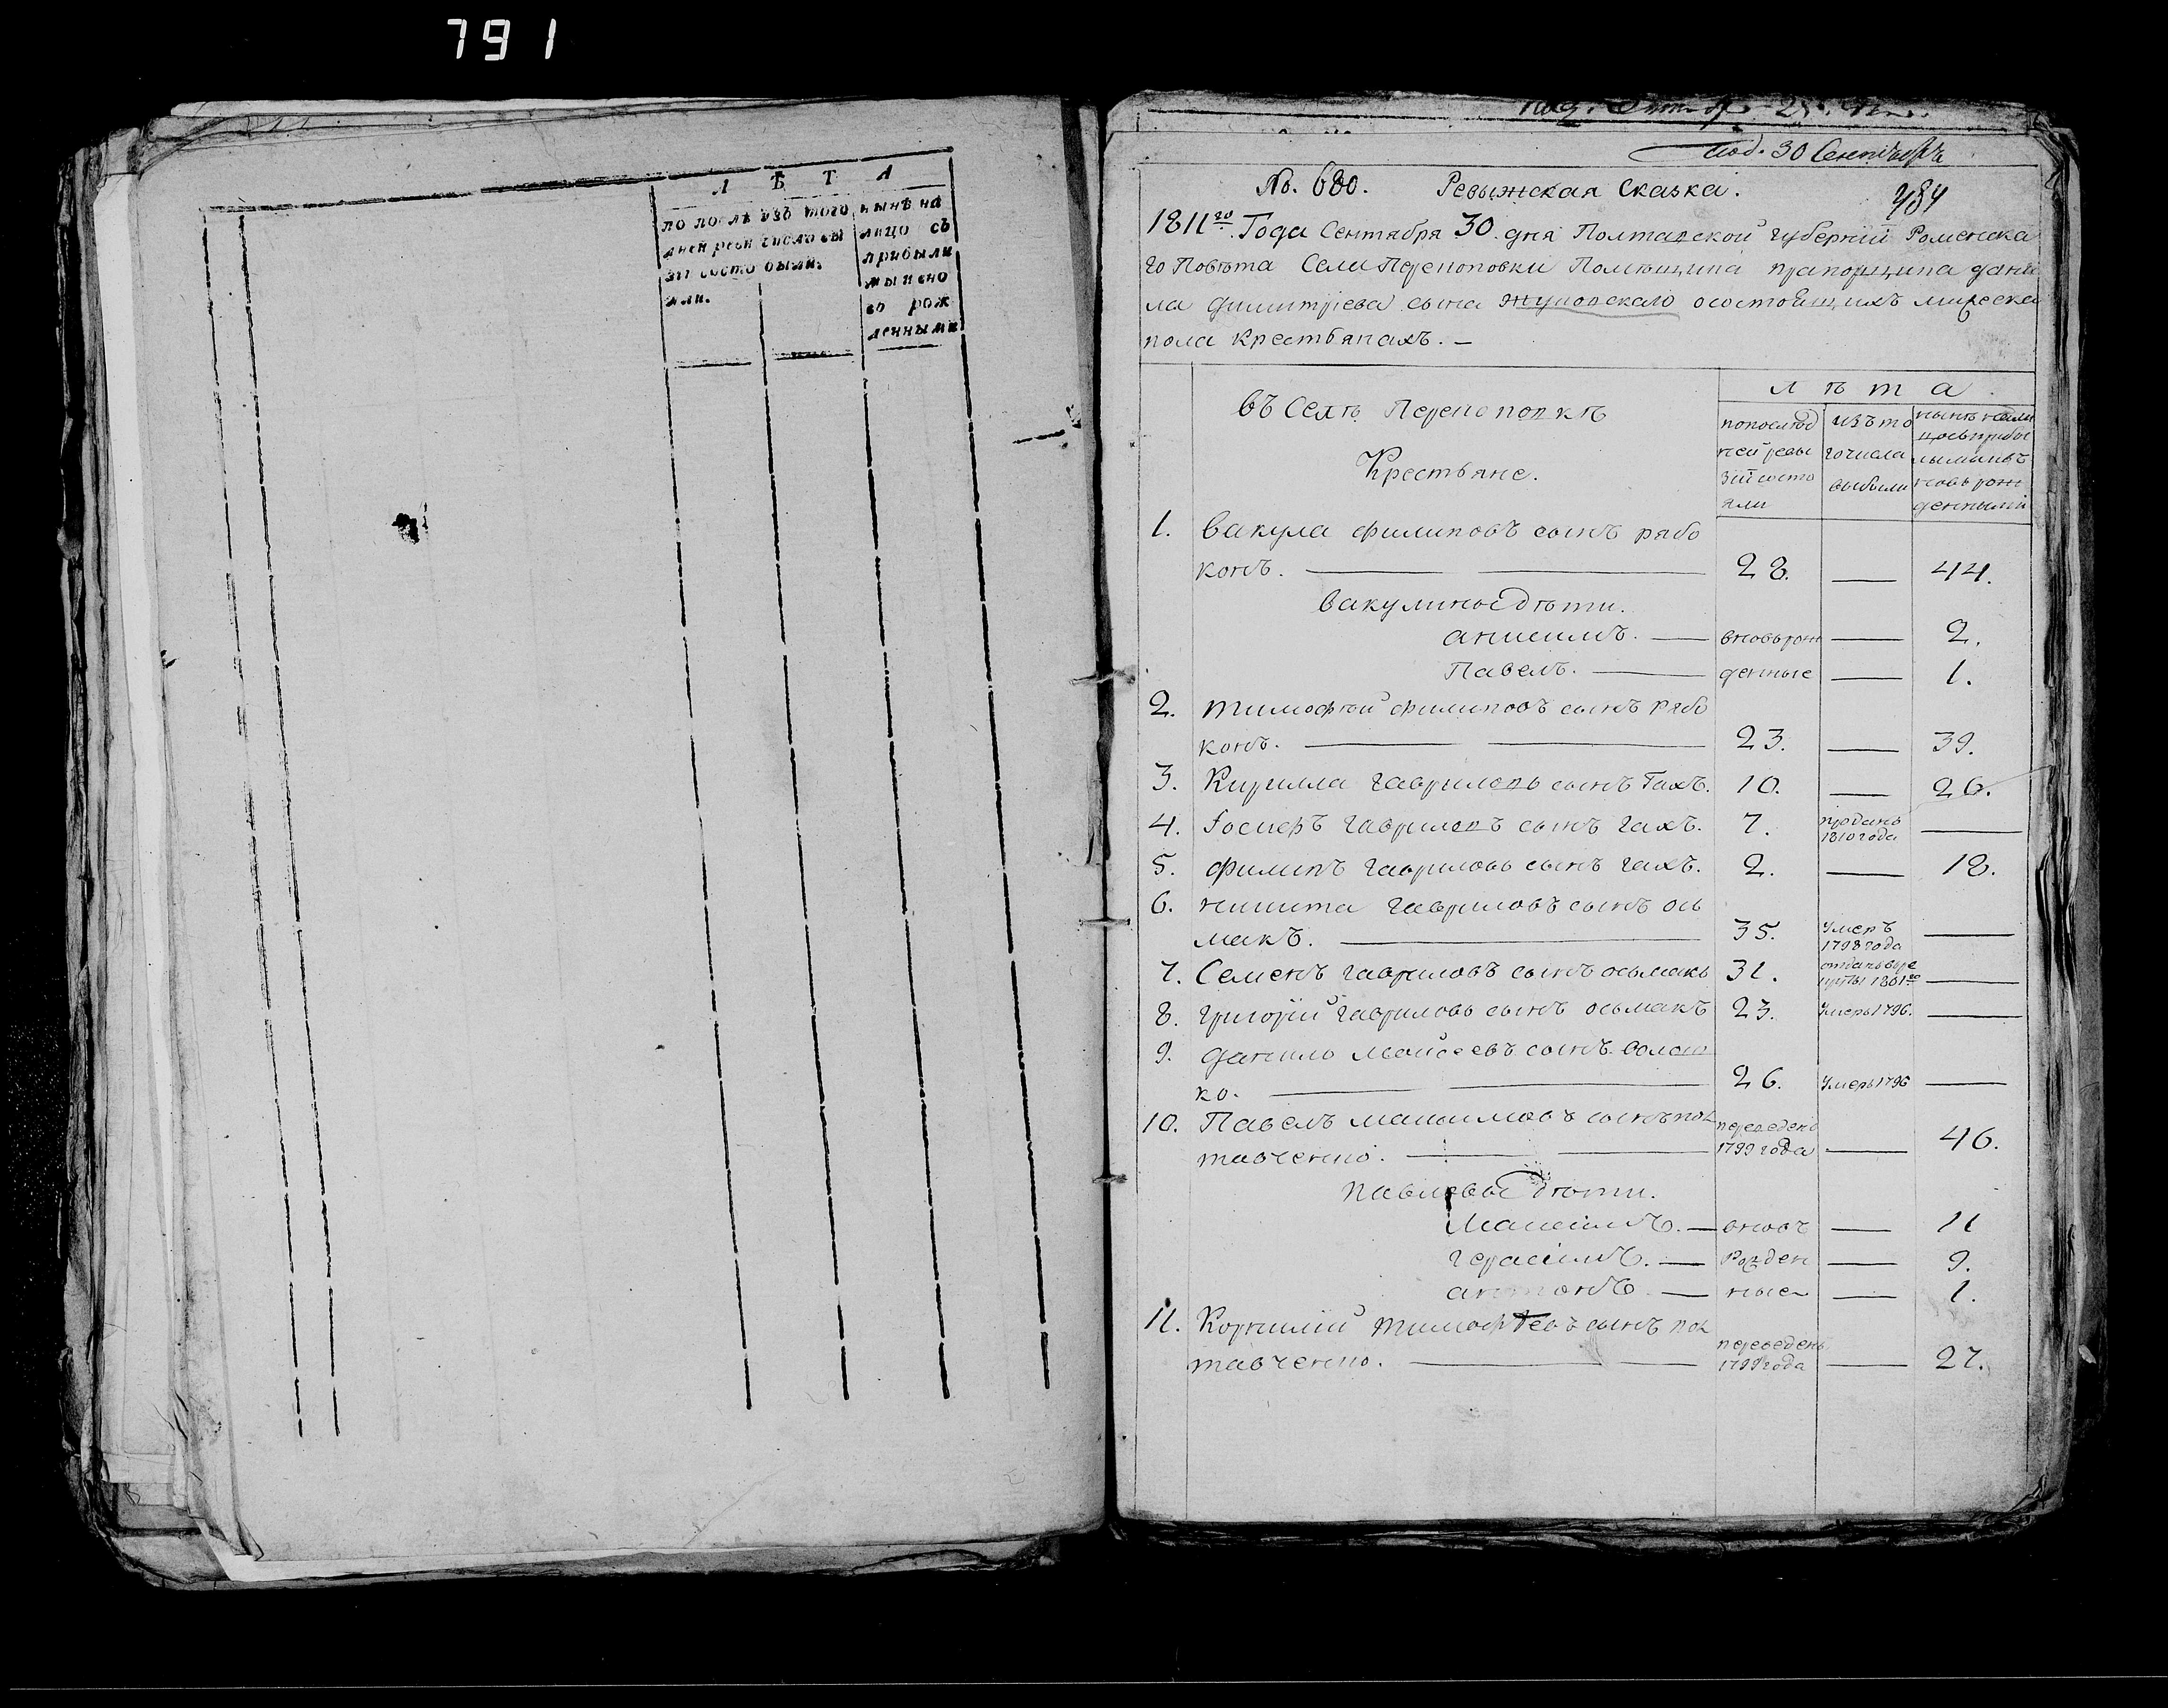 791
Л Ѣ Т А
по послѣ
дней реви
зіи состо
яли.
изъ того
числа вы
были.
нынѣ на
лицо съ
прибыли
ми и вно
во рож
денными
под. 30 Сентября
No. 680. Ревыжская Сказка.
484
1811го Года Сентября 30 дня Полтавской губернии Роменска
го Повѣта Села Перекоповки Помѣщика прапорщика дани
ла димитріева сына Жуковскаго осостоящихъ мужеска
пола крестьянахъ. —
въ Селѣ Перекоповкѣ
Крестьяне.
лѣта.
попослѣд
ней ревы
зіи состо
яли
изъ то
го числа
выбыли
нынѣ нали
цосьприбы
лымиивъ
новь рож
денными
1. вакула филиповъ сынъ рябо
конъ. — 28. — 44.
вакулины дѣти.
анисимъ. — вновьрож — 2.
Павелъ. — денные — 1.
2. тимофѣй филиповъ сынъ рябо
конъ. — 23. — 39.
3. Кирилла гавриловъ сынъ Гахъ. 10. — 26.
4. Іосифъ гавриловъ сынъ гахъ. 7. проданъ 1810 года —
5. филипъ гавриловъ сынъ гахъ. 2. — 18.
6. никита гавриловъ сынъ ось
макъ. — 35. Умеръ 1798 года —
7. Семенъ гавриловъ сынъ осьмакъ 31. отданъ въре круты 1801го —
8. григорій гавриловъ сынъ осьмакъ 23. Умеръ 1796. —
9. данило мойсеевъ сынъ волош
ко. — 26. Умеръ 1796 —
10. Павелъ максимовъ сынъ пол
тавченко. — переведенъ 1799 года — 46.
павловы дѣти.
Максимъ. — вновъ — 11
герасимъ. — Рожден — 9.
антонъ — ные — 1.
11. Корнилій тимофѣевъ сынъ пол
тавченко. — переведенъ 1799 года — 27.